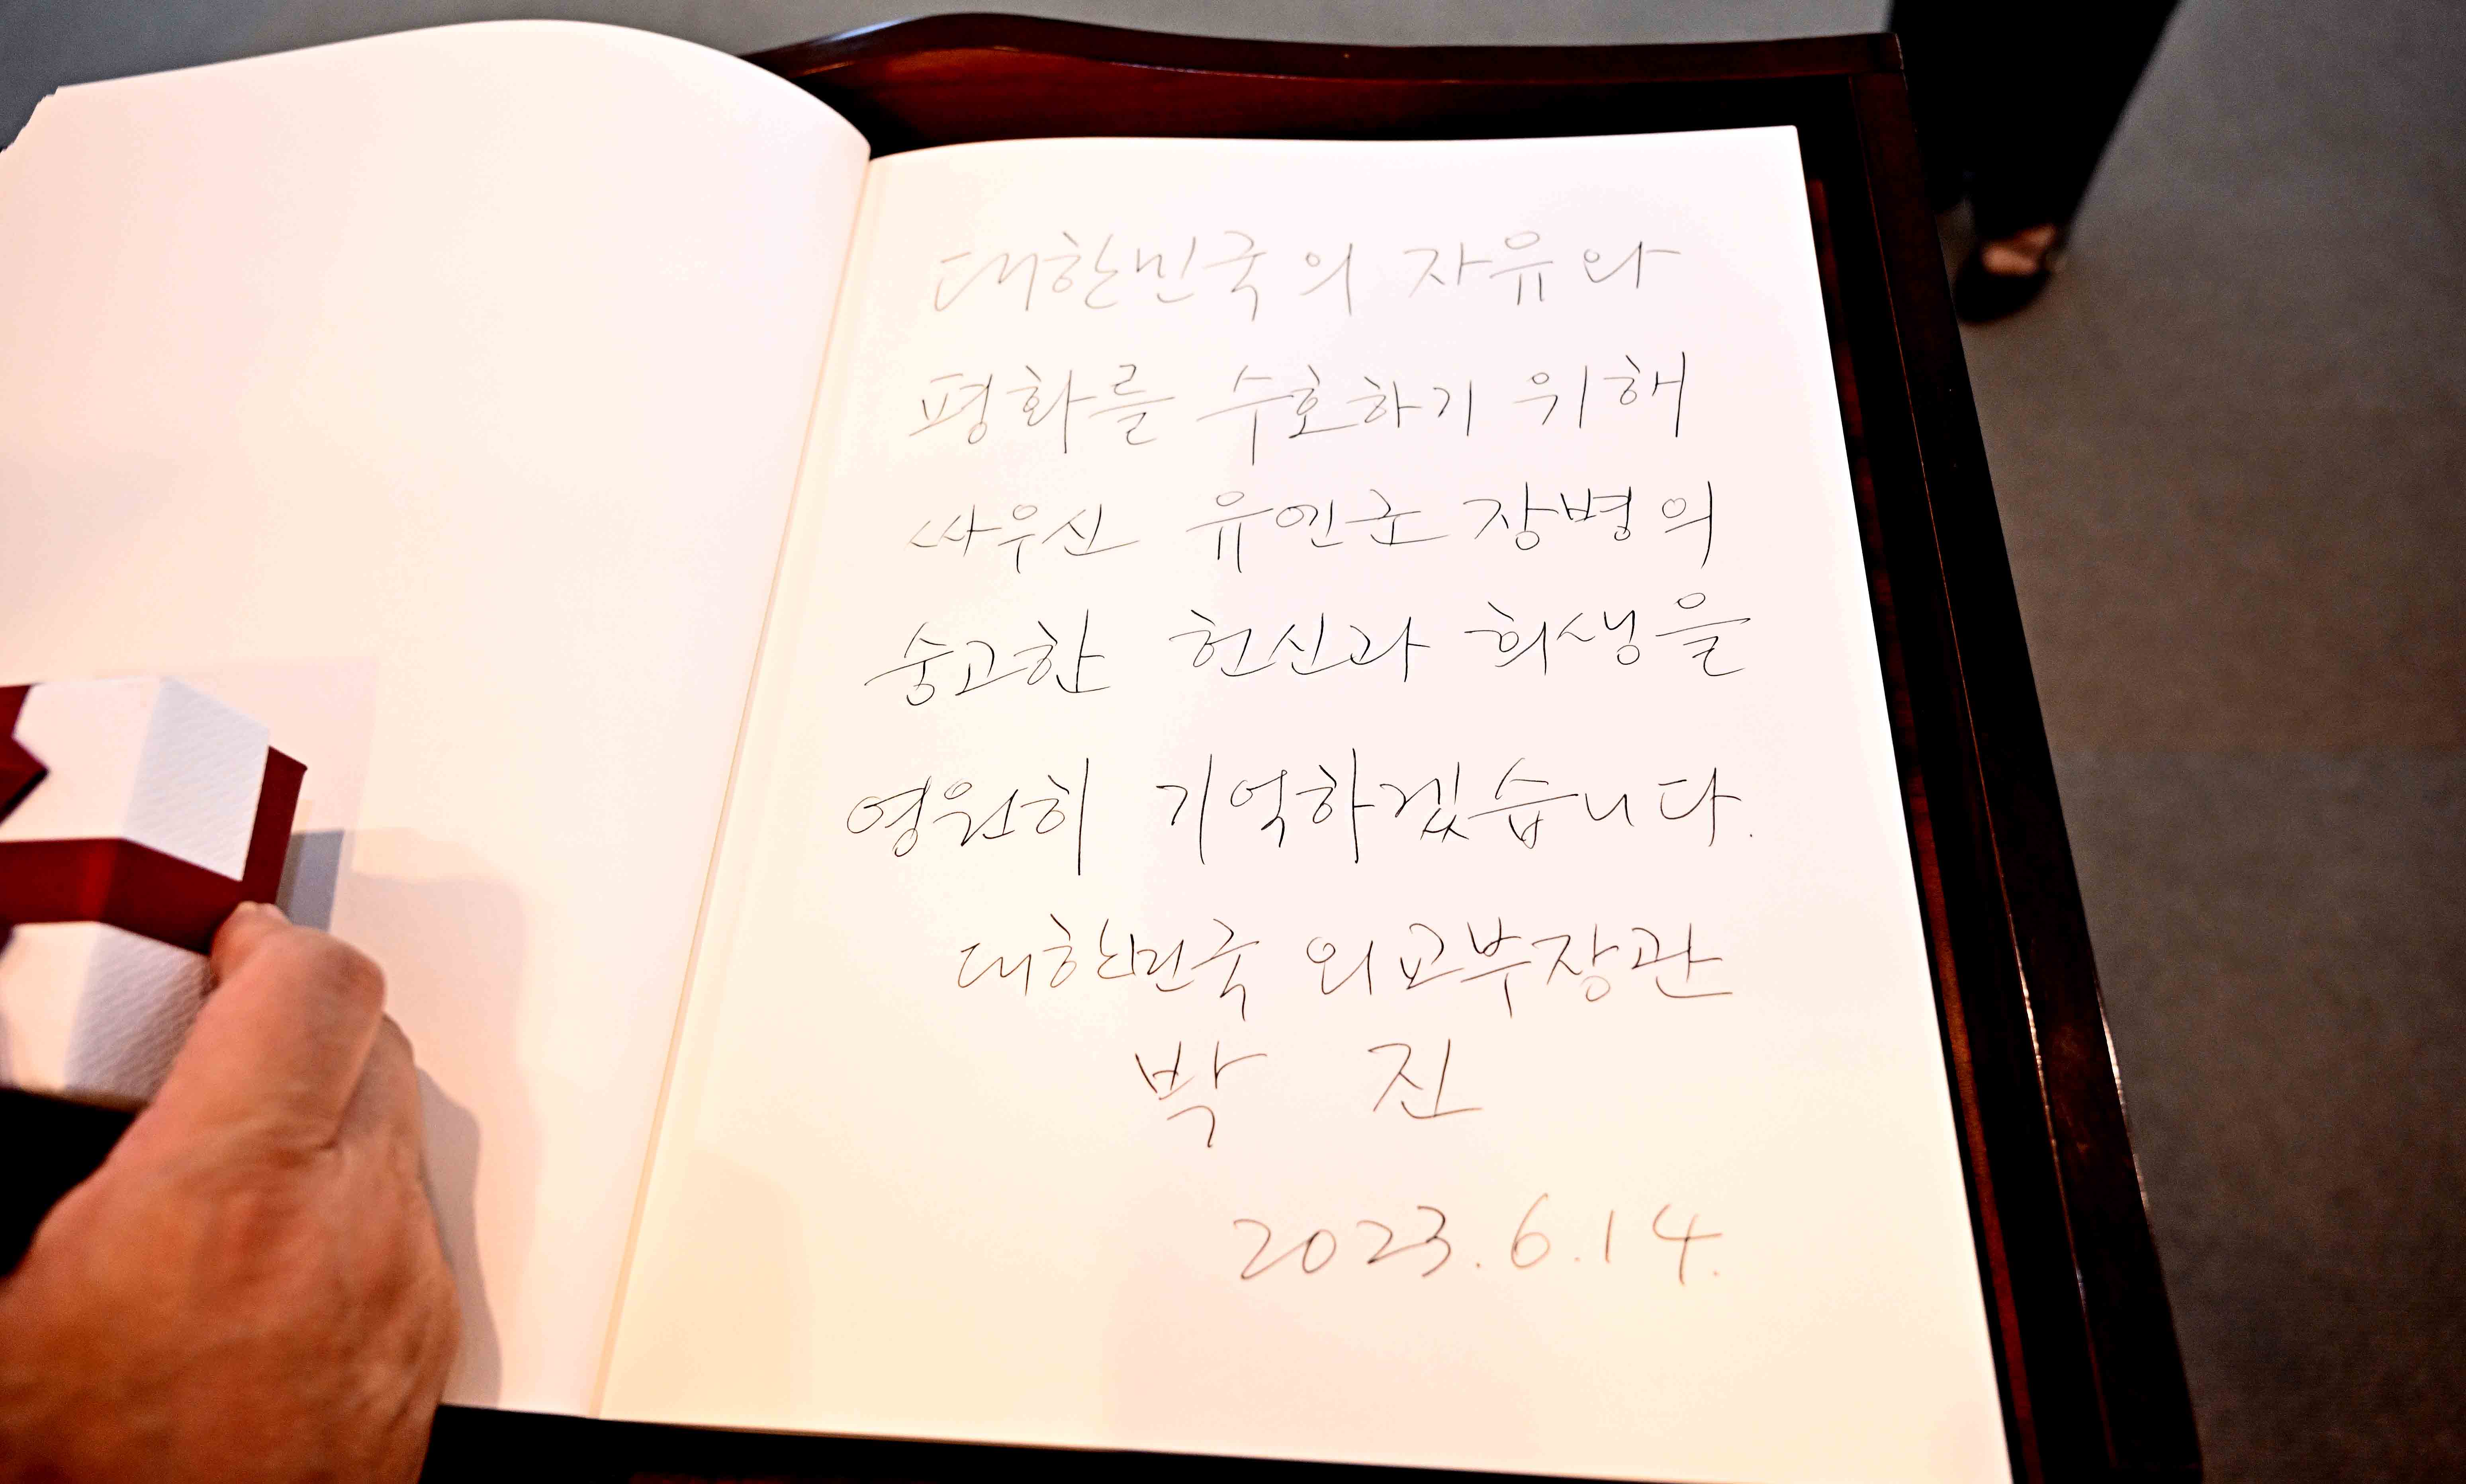 대한민국의 자유와
평화를 수호하기 위해
싸우신 유엔군 장병의
숭고한 헌신과 희생을
영원히 기억하겠습니다.
대한민국 외교부장관
박 진
2023.6.14.